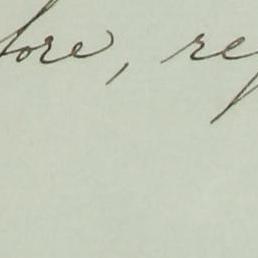 fore, re